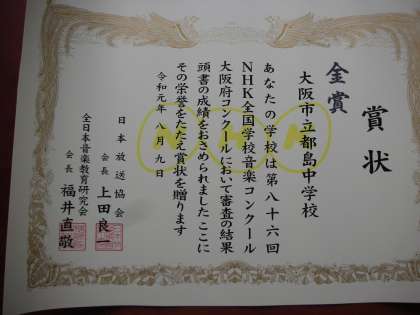 賞状
金賞
大阪市立都島中学校
あなたの学校は第八十六回
NHK全国学校音楽コンクール
大阪府コンクールにおいて審査の結果
頭書の成績をおさめられました ここに
その栄誉をたたえ賞状を贈ります
令和元年 八月 九日
日本放送協会
会長 上田良一
全日本音楽教育研究会
会長 福井直敬
NHK